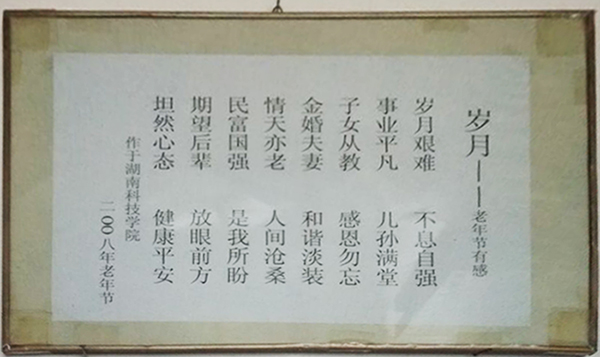 岁月——老年节有感
岁月艰难 不息自强
事业平凡 儿孙满堂
子女从教 感恩勿忘
金婚夫妻 和谐淡装
情天亦老 人间沧桑
民富国强 是我所盼
期望后辈 放眼前方
坦然心态 健康平安
作于湖南科技学院
二00八年老年节